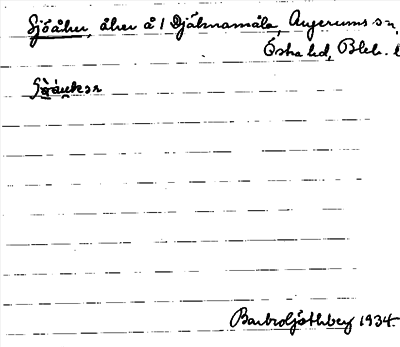 Sjöåker, åker å 1 Djälmamåla, Augerums sn,
Östra hd, Blek. l
Barbro Ljöthberg 1934.